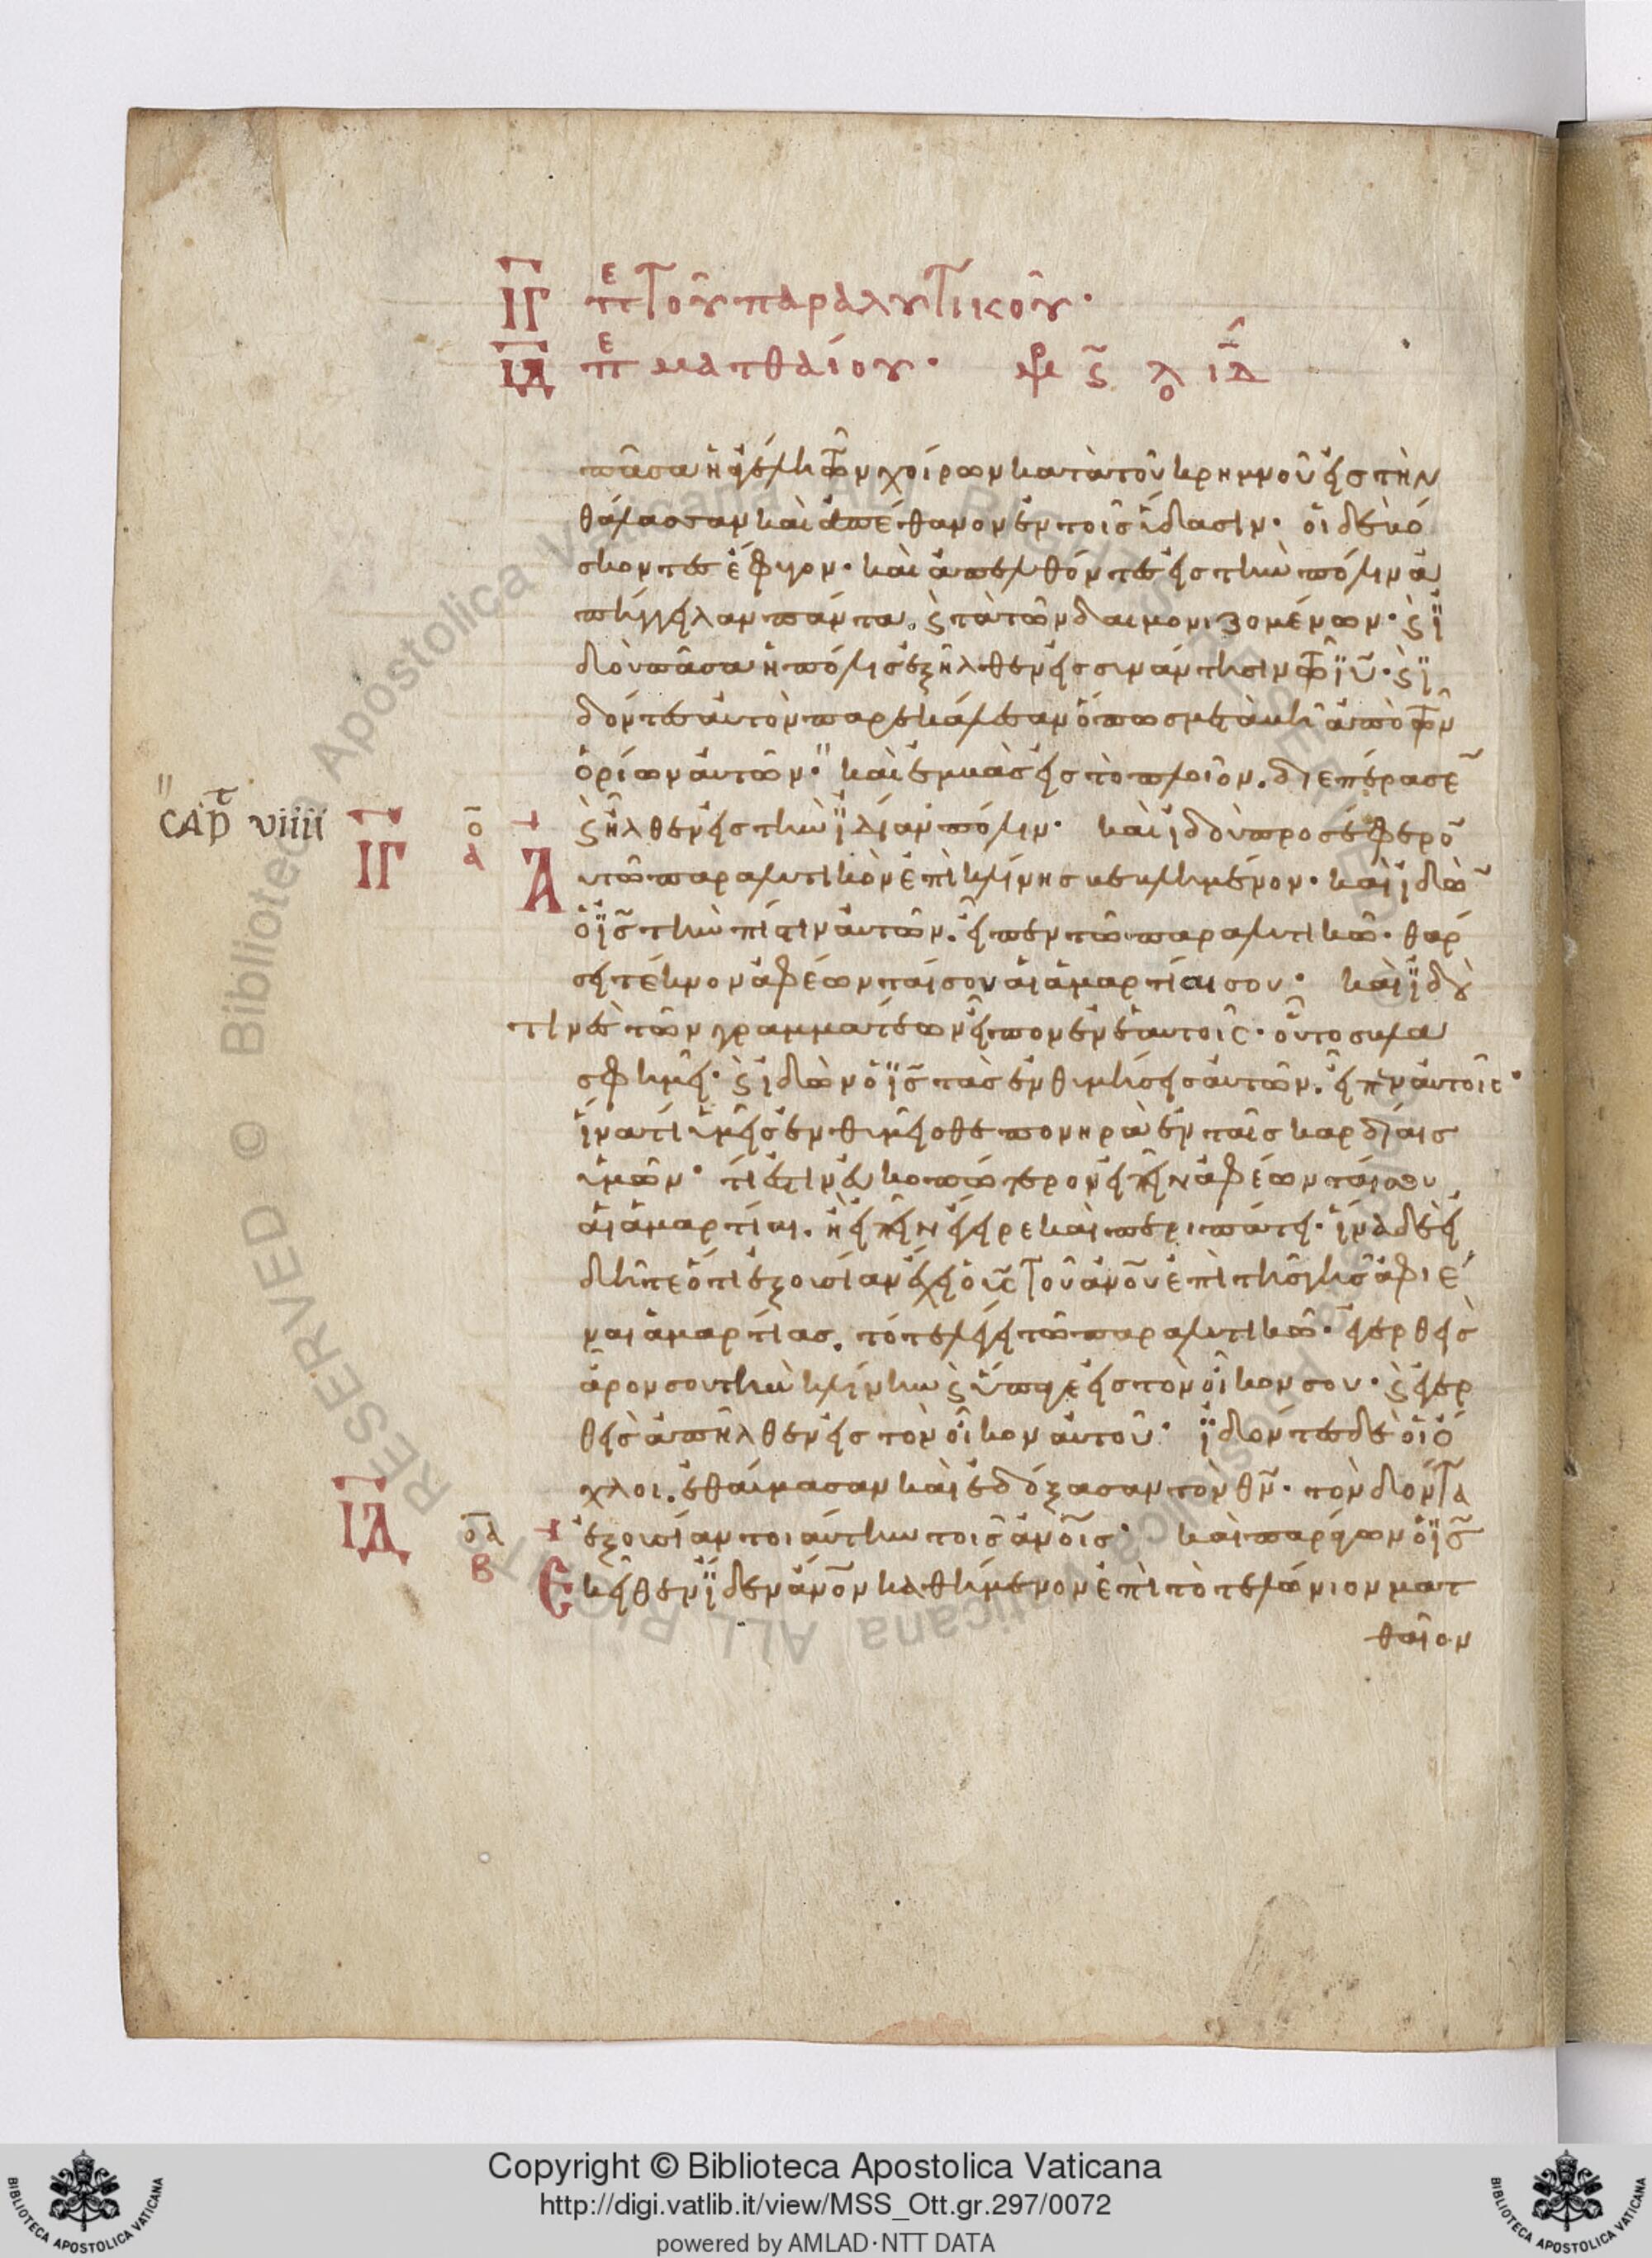 ΙΓ πε τοῦ παραλυτικοῦ·
ΙΔ πε ματθαίου·
πᾶσα ἡ ἀγέλη τῶν χοίρων κατὰ τοῦ κρημνοῦ εἰς τὴν
θάλασσαν καὶ ἀπέθανον ἐν τοῖς ὕδασιν· οἱ δὲ βό
σκοντες ἔφυγον· καὶ ἀπελθόντες εἰς τὴν πόλιν ἀ
πήγγειλαν πάντα. ϛ τὰ τῶν δαιμονιζομένων· ϛ ἰ
δοὺ πᾶσα ἡ πόλις ἐξῆλθεν εἰς συνάντησιν τῶ ιυ· ϛ ἰ
δόντες αὐτὸν παρεκάλεσαν ὅπως μεταβῆ ἀπὸ τῶν
ὁρίων αὐτῶν· καὶ ἐμβὰς εἰς τὸ πλοῖον. διεπέρασε
ϛ ἦλθεν εἰς τὴν ἰδίαν πόλιν· καὶ ἰδοὺ προσέφερο
CAP VIIII ΙΓ ο α
Αυτῶ παραλυτικὸν ἐπὶ κλίνης βεβλημένον· καὶ ἰδὼ
ὁ ις τὴν πίστιν αὐτῶν. εἶπεν τῶ παραλυτικῶ· θάρ
σει τέκνον ἀφέωνταί σου αἱ ἁμαρτίαι σου· καὶ ἰδοὺ
τινὲς τῶν γραμματέων εἶπον ἐν ἑαυτοῖς· οὗτος βλα
σφημεῖ· ϛ ἰδὼν ὁ ις τὰς ἐνθυμήσεις αὐτῶν. εἶπεν αὐτοῖς·
ἵνα τί ὑμεῖς ἐνθυμεῖσθε πονηρὰ ἐν ταῖς καρδίαις
ὑμῶν· τί ἐστιν εὐκοπώτερον εἰπεῖν ἀφέωνταί σου
αἱ ἁμαρτίαι. ἢ εἰπεῖν ἔγειρε καὶ περιπάτει· ἵνα δὲ εἰ
δῆτε ὅτι ἐξουσίαν ἔχει ὁ υς τοῦ ανου ἐπὶ τῆς γῆς ἀφιέ
ναι ἁμαρτίας. τότε λέγει τῶ παραλυτικῶ· ἐγερθεὶς
ἆρον σου τὴν κλίνην ϛ ὕπαγε εἰς τὸν οἶκον σου· ϛ ἐγερ
θεὶς ἀπῆλθεν εἰς τὸν οἶκον αὐτοῦ· ἰδόντες δὲ οἱ ὄ
χλοι. ἐθαύμασαν καὶ ἐδόξασαν τὸν θν· τὸν δόντα
ΙΔ οα Β
ἐξουσίαν τοιαύτην τοῖς ανοις· καὶ παράγων ὁ ις
Εκεῖθεν ἴδεν ανον καθήμενον ἐπὶ τὸ τελώνιον ματ
θαῖον
Copyright © Biblioteca Apostolica Vaticana
http://digi.vatlib.it/view/MSS_Ott.gr.297/0072
powered by AMLAD·NTT DATA
BIBLIOTECA APOSTOLICA VATICANA
BIBLIOTECA APOSTOLICA VATICANA